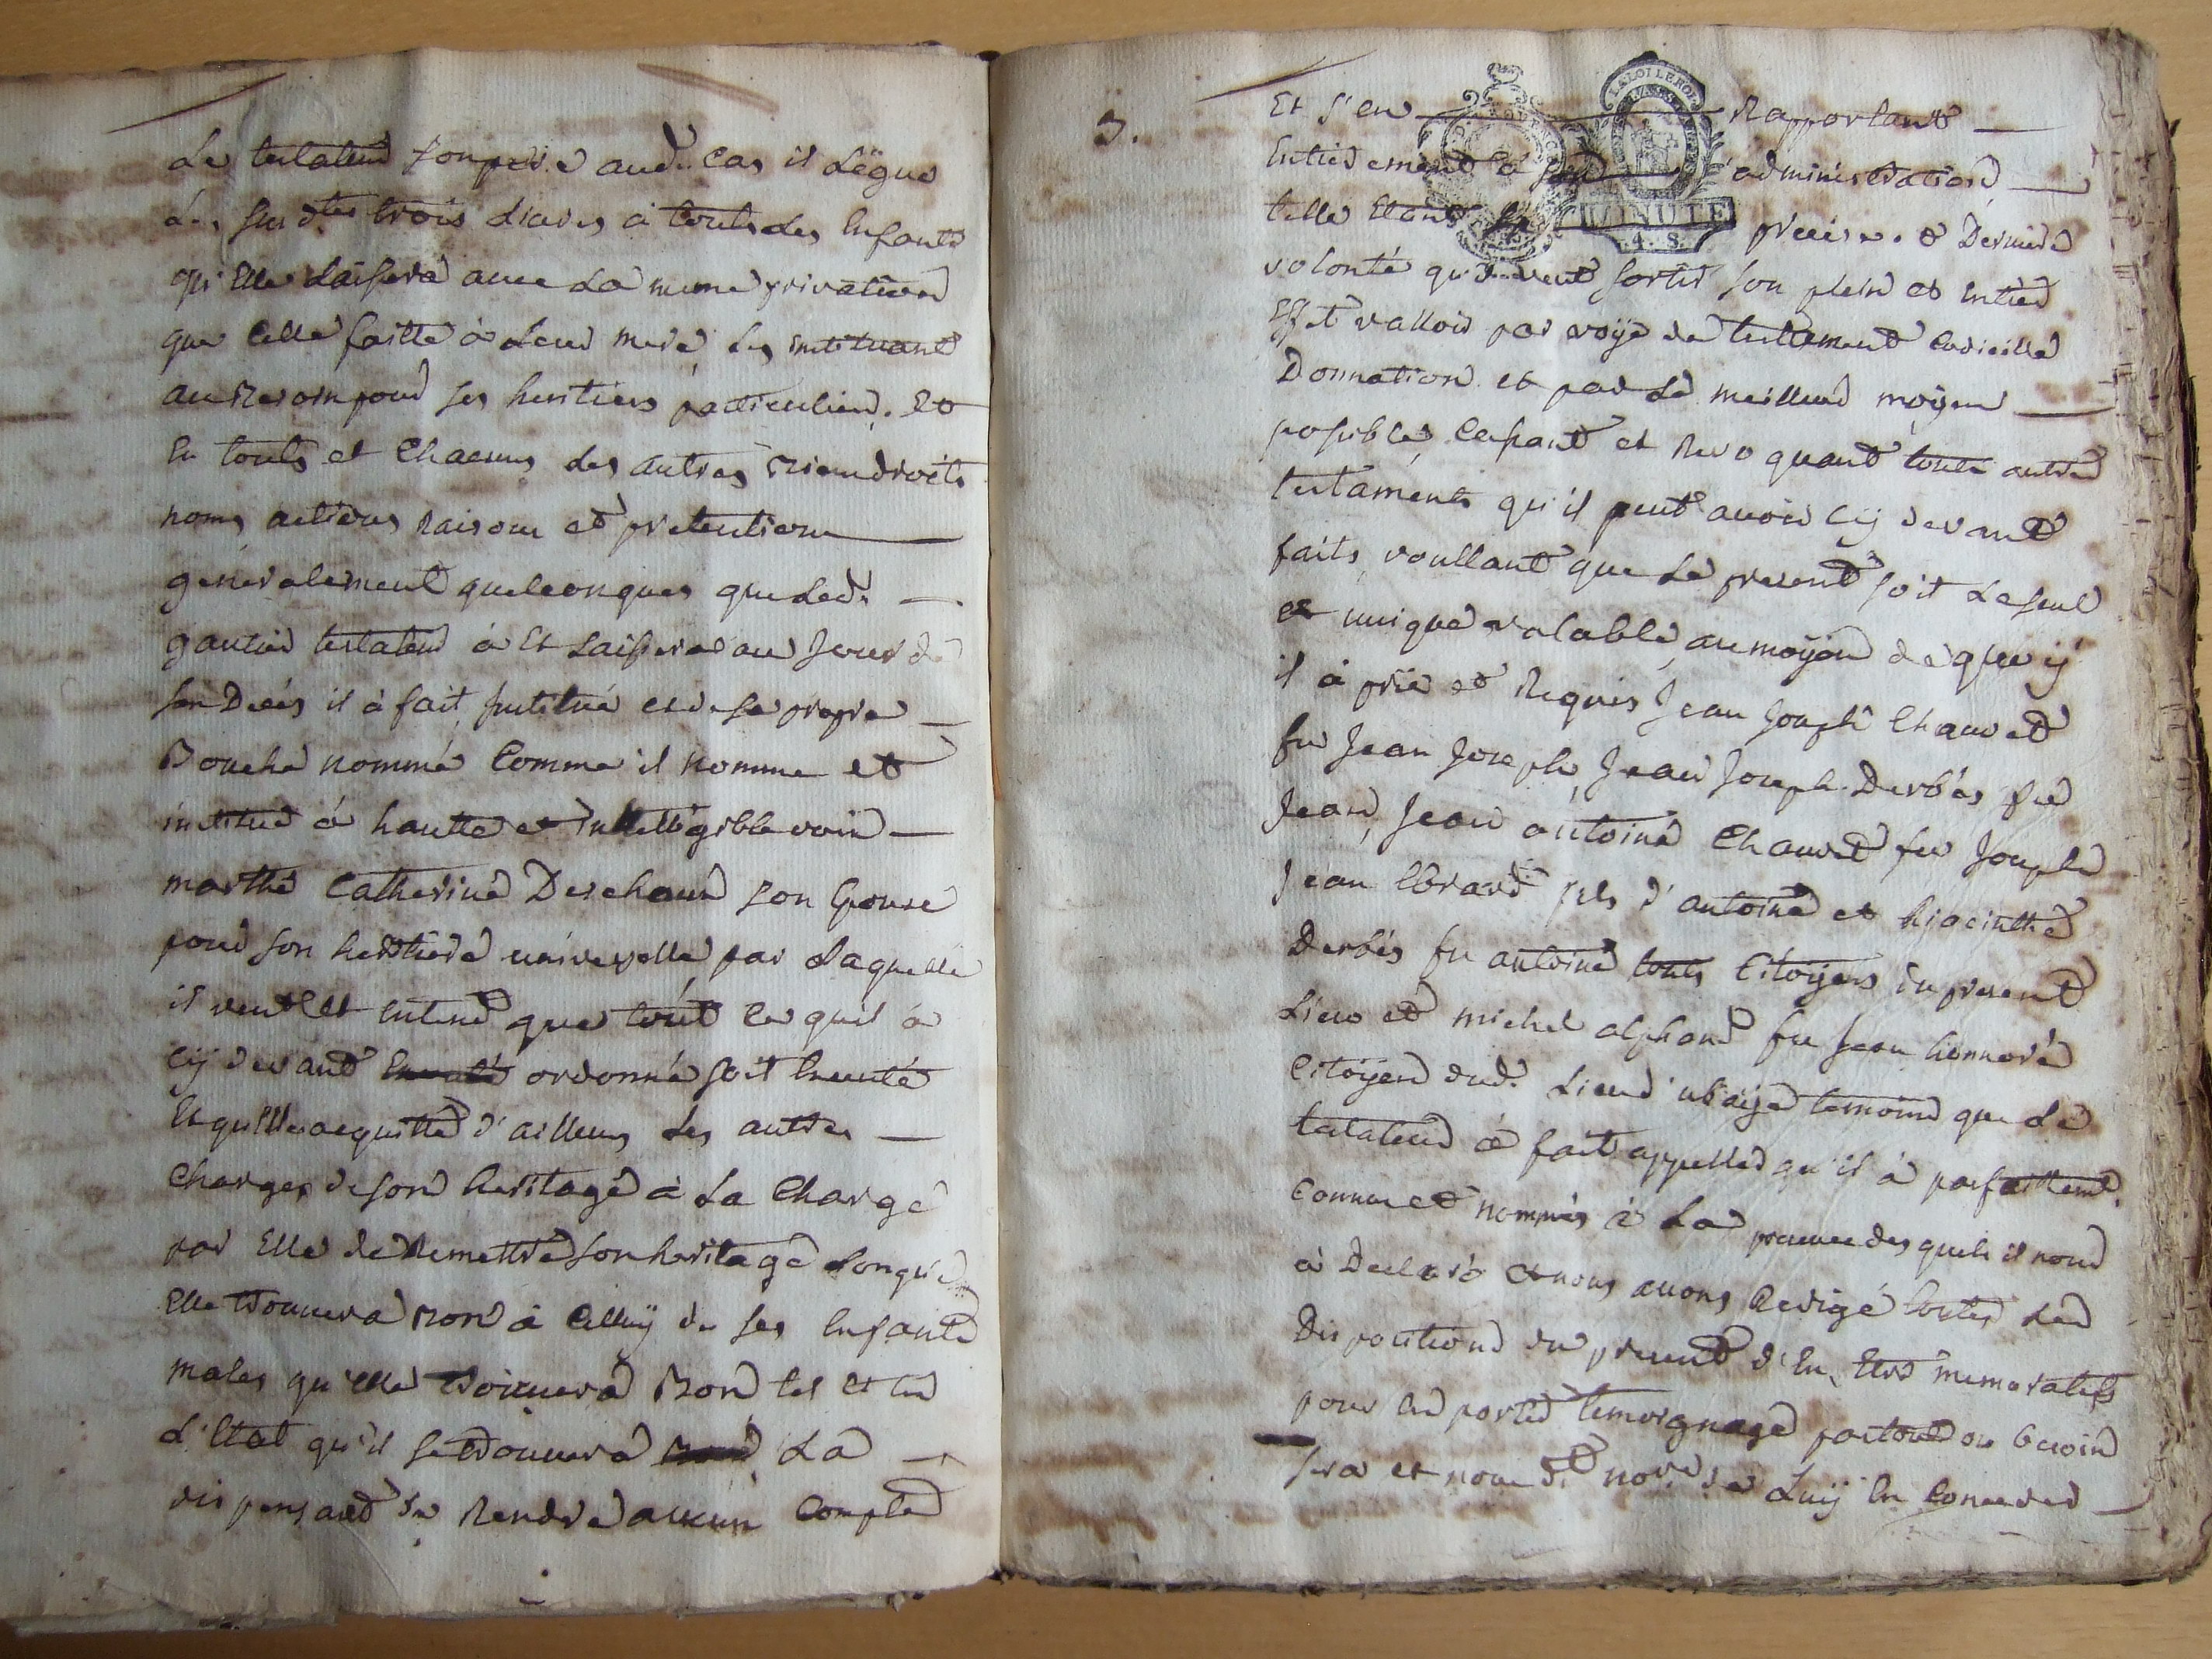 Le testateur son pere audit Cas il Lègue
Les susdtes trois Livres à touts Les Enfants
qu'Elle Laissera avec La meme privation
que Celle faitte à Leur mere Les instituant
au Moyen pour ses heritiers particuliers. Et
En touts et Chacuns Les autres Biens droits
noms actions Raisons et pretentions
generalement quelconques que Led.
gautier testateur à Et Laissera au Jour de
son Decés il à fait Institué et de sa propre
Bouche nommé Comme il nomme et
institue à hautte et intelligible voix
marthe Catherine Deschaux son Epouse
pour son heritiere universelle par Laquelle
il veut Et Entend que tout Ce quil à
Cy devant ordonné soit Executé
Et qu'Elle acquitte d'ailleurs Les autres
Charges de son heritage à La Charge
par Elle de Remettre son heritage Lorsqu'
Elle trouvera Bon à Celluy de ses Enfants
males qu'elle trouvera Bon tel Et En
L'Etat qu'il se trouvera La
dispensant de Rendre aucun Compte
3.
Et s'en Rapportant
Entierement à son administration
telle Etant sa precise & Derniere
LA LOI LE ROI
MINUTE
4. S.
volonté qui veut sortir son plein et Entier
Effet valloir par voye de testement Codicille
Donnation et par Le meilleur moyen
possible, Cassant et Revoquant toute autre
testaments qu'il peut avoir Cy devant
faits, voullant que Le present soit Le seul
et unique valable au moyen de quoy
il à prié et Requis Jean Joseph Chauvet
fu Jean Joseph, Jean Joseph Derbés fu
Jean, Jean antoine Chauvet fu Joseph
Jean Ebrard fils d'antoine et hiacinthe
Derbés fu antoine touts Citoyens Du present
Lieu et michel alphand fu Jean honnoré
Citoyen dud. Lieu d'ubaye temoins que Le
testateur à fait appeller qu'il à parfaittemt.
Connu et nommés à La presence desquels il nous
à Declaré et nous avons Redigé toutes Les
Dispositions du present d'En Etre memoratifs
pour En porter temoignage partout ou besoin
sera et nous dt. nore. de Luy En Conceder